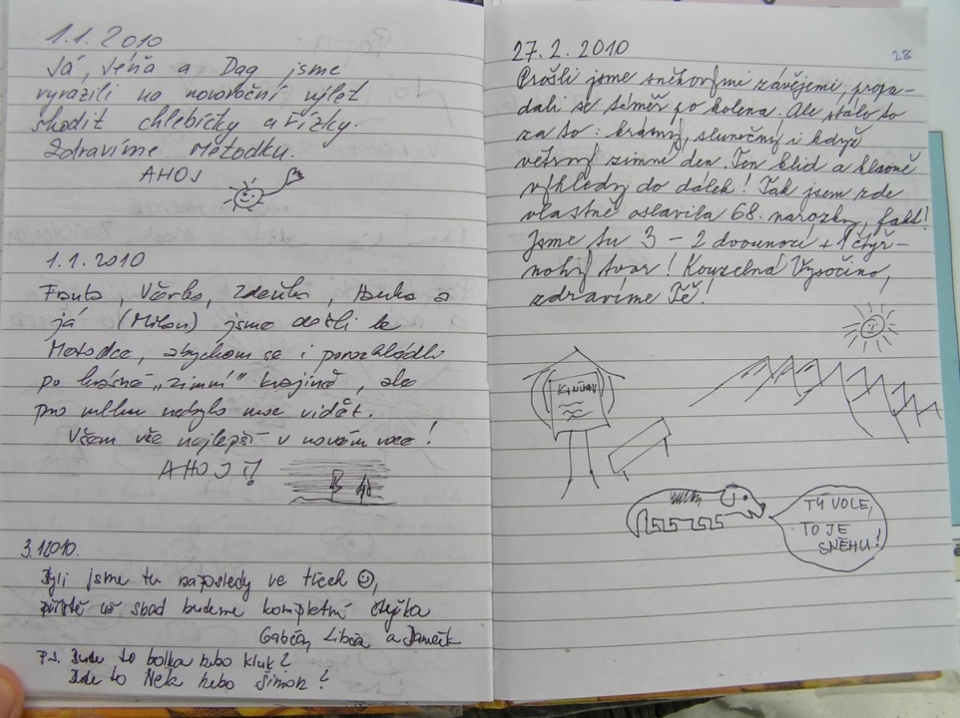 1.1.2010
Já, Jéňa a Dag jsme
vyrazili na novoroční výlet
shodit chlebíčky a řízky.
Zdravíme Metodku.
AHOJ
1.1.2010
Franta, Věrka, Zdeňka, Hanka a
já (Milan) jsme došli k
Metodce, abychom se i porozhlédli
po krásné „zimní" krajině, ale
pro mlhu nebylo moc vidět.
Všem vše nejlepší v novém roce!
AHOJ!
3.1.2010.
Byli jsme tu naposledy ve třech ☺,
příště už snad budeme kompletní čtyřka
Gabča, Libča a
P.S. Bude to holka nebo kluk?
Bude to Nela nebo Šimon?
27.2.2010
28
Prošli jsme sněhovými závějemi, propa-
dali se téměř po kolena. Ale stálo to
za to: krásný, slunečný i když
větrný zimní den. Ten klid a hlavně
výhledy do dálek! Tak jsem zde
vlastně oslavila 68. narozky, fakt!
Jsme tu 3 – 2 dvounozí + 1 čtyř-
nohý tvor! Kouzelná Vysočino,
zdravíme Tě!
TÝ VOLE,
TO JE
SNĚHU!